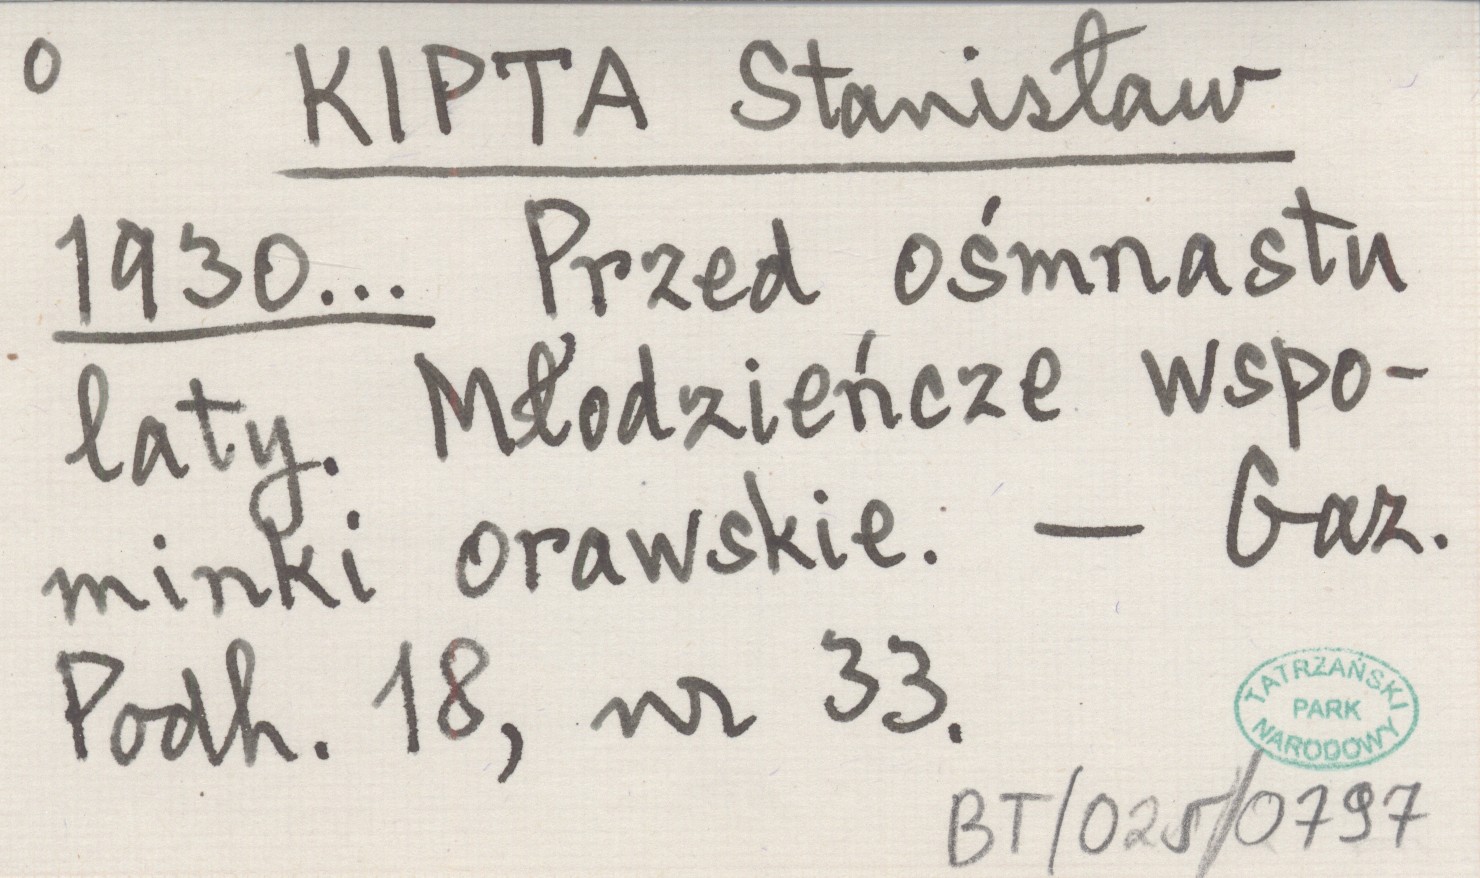 O KIPTA Stanisław
1930... Przed ośmnastu
laty. Młodzieńcze wspo-
minki orawskie. — Gaz.
Podh. 18, nr 33.
TATRZAŃSKI
PARK
NARODOWY
BT/025/0797